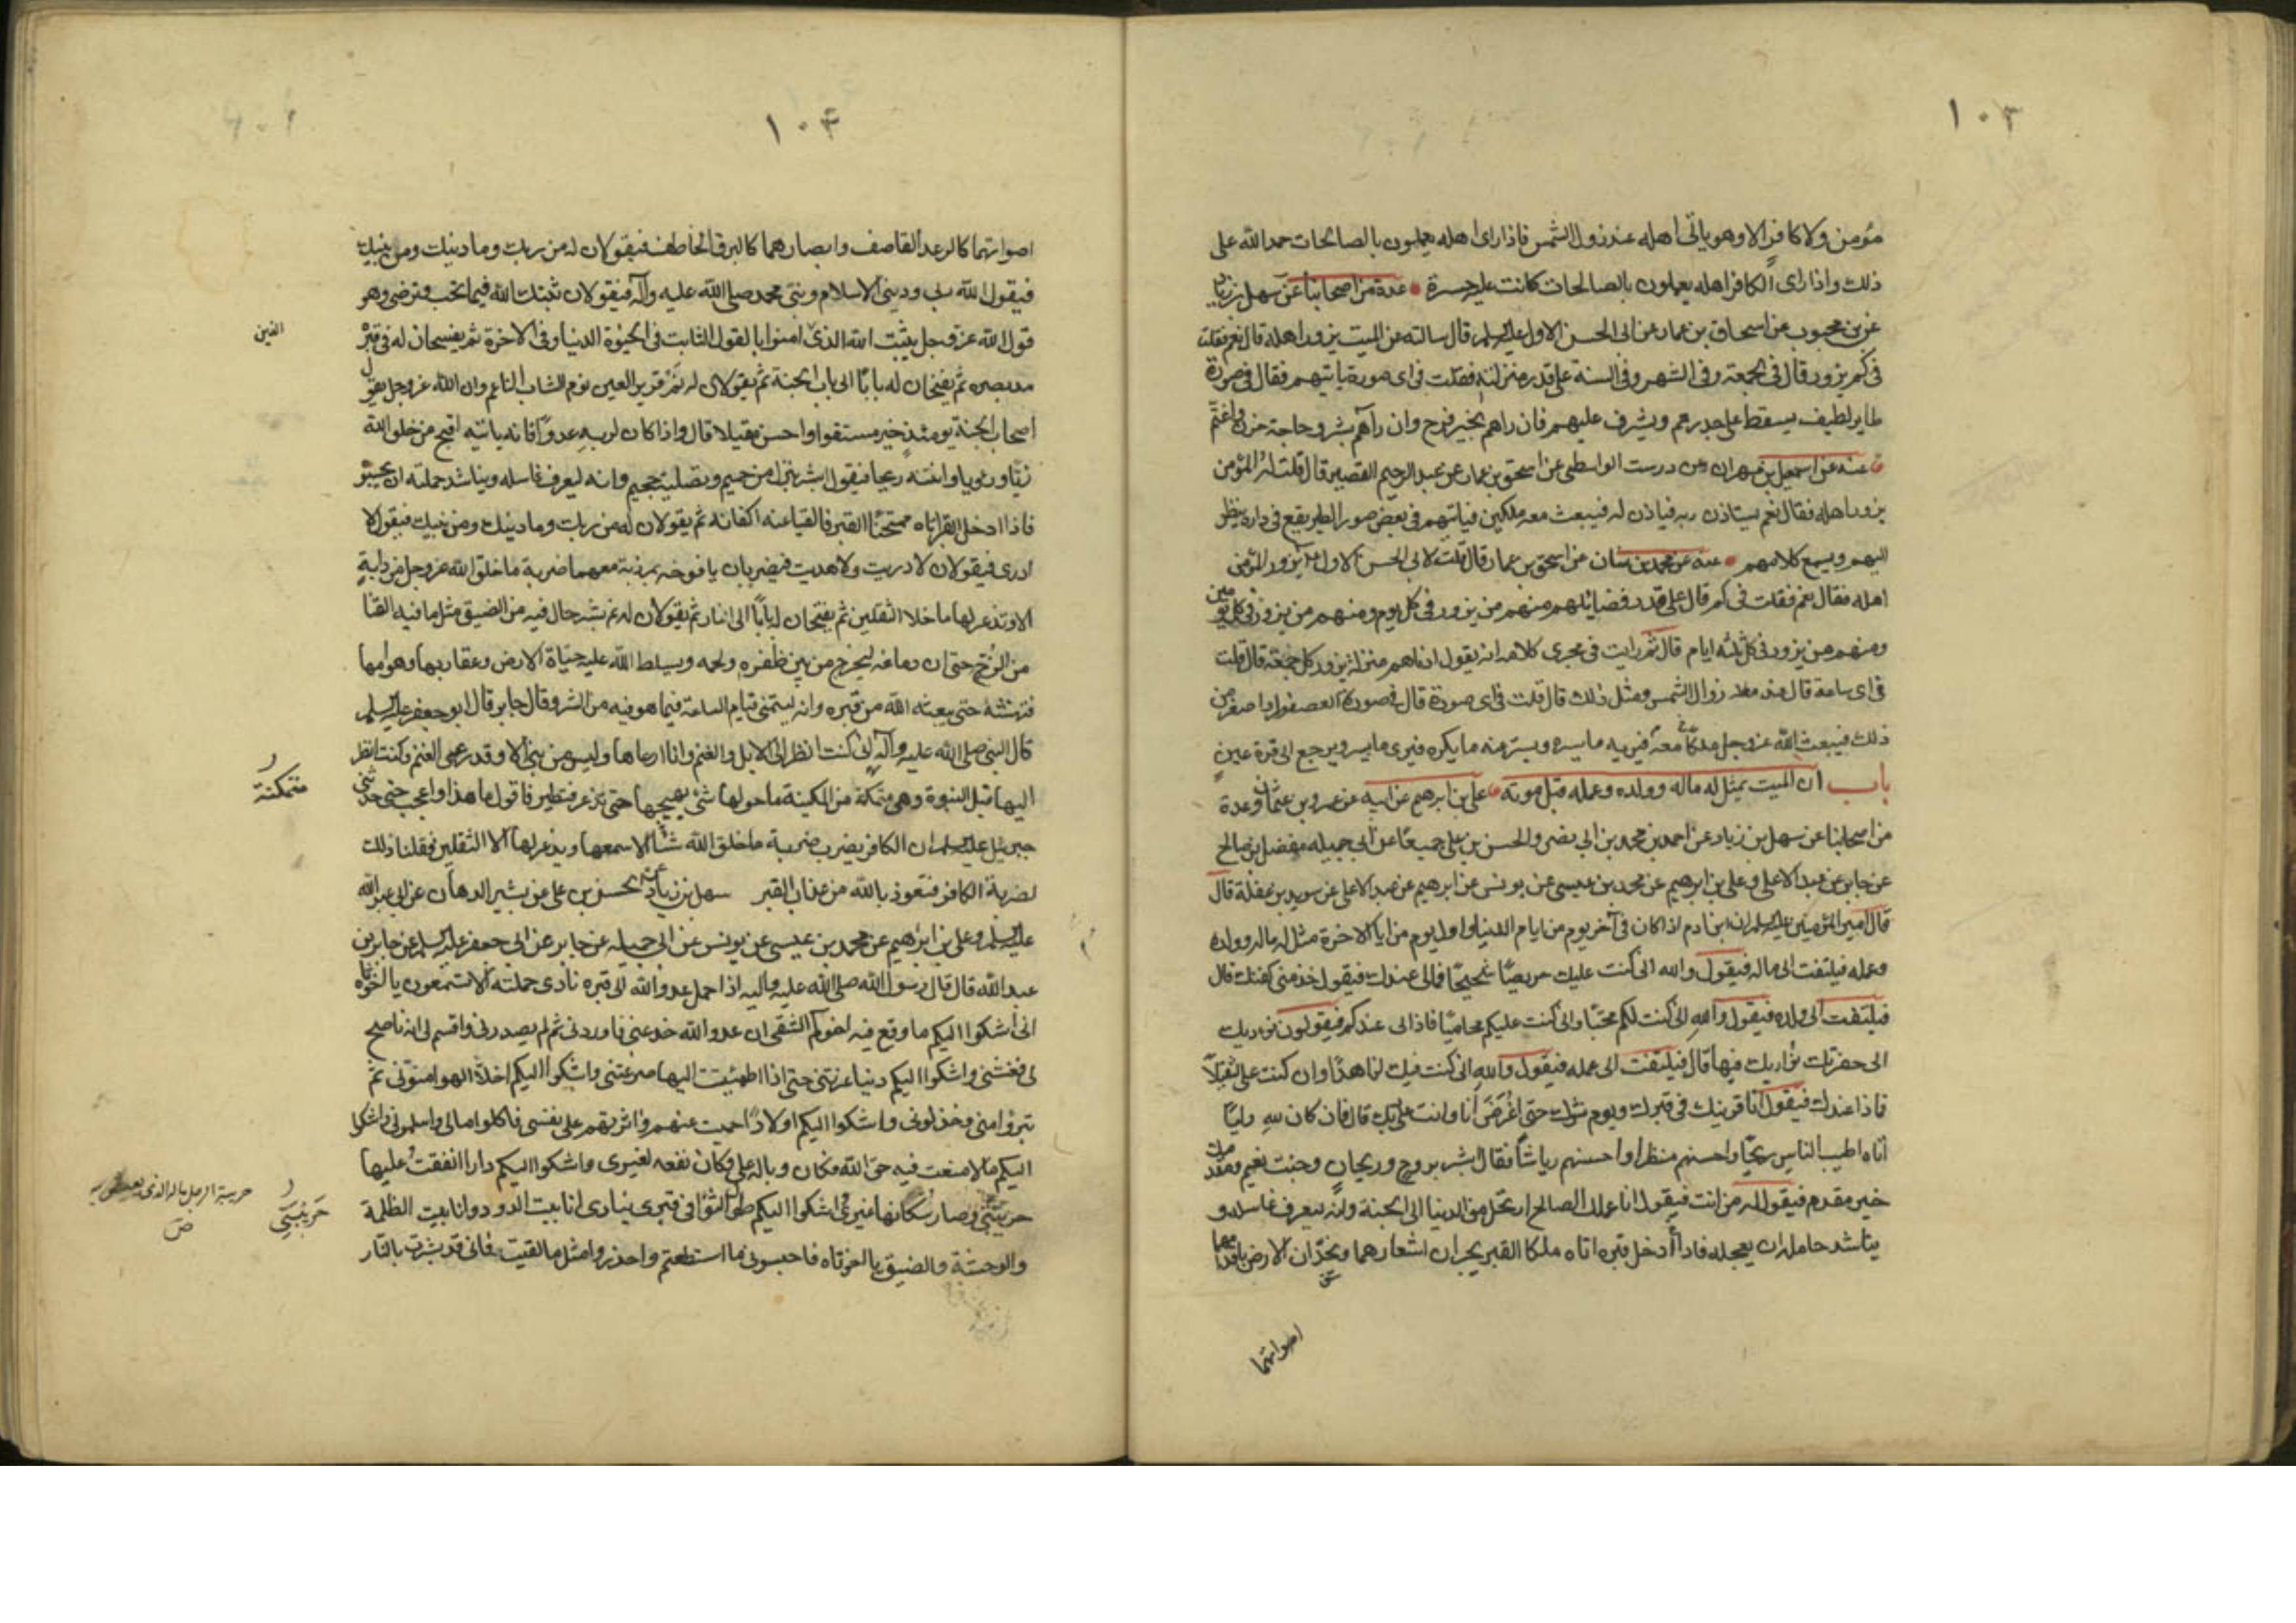 ١٠٣
مؤمن ولا كافر الا وهو ياتى اهله عند زوال الشمس فاذا راى اهله يعملون بالصالحات حمد الله على
ذلك واذا راى الكافر اهله يعملون بالصالحات كانت عليه حسرة عدة من اصحابنا عن سهل بن زياد
عن بن محبوب عن اسحاق بن عمار عن ابى الحسن الاول عليه السلم قال سالته عن الميت يزور اهله قال نعم فقلت
فى كم يزور قال فى الجمعة وفى الشهر وفى السنة على قدر منزلته فقلت فى اى صورة ياتيهم فقال فى صورة
طاير لطيف يسقط على جدرهم ويشرف عليهم فان راهم بخير فرح وان رآهم بشر وحاجة حزن واغتم
عنه عن اسمعيل بن مهران عن درست الواسطى عن اسحق بن عمار عن عبد الرحيم القصير قال قلت له المؤمن
يزور اهله فقال نعم يستاذن ربه فياذن له فيبعث معه ملكين فياتيهم فى بعض صور الطير يقع فى داره ينظر
اليهم ويسمع كلامهم عنه عن محمد بن سنان عن اسحق بن عمار قال قلت لابى الحسن الاول ع يزور المؤمن
اهله فقال نعم فقلت فى كم قال على قدر فضائلهم منهم من يزور فى كل يوم ومنهم من يزور فى كل يومين
ومنهم من يزور فى كل ثلثه ايام قال ثم رايت فى مجرى كلامه انه يقول ادناهم منزلة يزور كل جمعة قال قلت
فى اى ساعة قال عند زوال الشمس ومثل ذلك قال قلت فى اى صورة قال فى صورة العصفور او اصغر من
ذلك فيبعث الله عز وجل ملكا معه فيريه ما يسره ويستر عنه ما يكره فيرى ما يسره ويرجع الى قرة عين
باب ان الميت يمثل له ماله وولده وعمله قبل موته على بن ابرهيم عن ابيه عن عمرو بن عثمان وعدة
من اصحابنا عن سهل بن زياد عن احمد بن محمد بن ابى نصر والحسن بن على جميعا عن ابى جميله مفضل بن صالح
عن جابر عن عبد الاعلى وعلى بن ابرهيم عن محمد بن عيسى عن يونس عن ابرهيم عن عبد الاعلى عن سويد بن غفلة قال
قال امير المؤمنين عليه السلم ان ابن ادم اذا كان فى آخر يوم من ايام الدنيا واول يوم من ايام الاخرة مثل له ماله وولده
وعمله فيلتفت الى ماله فيقول والله انى كنت عليك حريصا شحيحا فمالى عندك فيقول خذ منى كفنك قال
فيلتفت الى ولده فيقول والله انى كنت لكم محبا وانى كنت عليكم محاميا فاذا لى عندكم فيقولون نؤديك
الى حفرتك نواريك فيها قال فيلتفت الى عمله فيقول والله انى كنت فيك لزاهدا وان كنت على لثقيلا
فاذا عندك فيقول انا قرينك فى قبرك ويوم نشرك حتى اعرض انا وانت على ربك قال فان كان لله وليا
اتاه اطيب الناس ريحا واحسنهم منظرا واحسنهم رياشا فقال ابشر بروح وريحان وجنت نعيم ومقدمك
خير مقدم فيقول له من انت فيقول انا عملك الصالح ارتحل من الدنيا الى الجنة وانه ليعرف غاسله و
يناشد حامله ان يعجله فاذا ادخل قبره اتاه ملكا القبر يجران اشعارهما ويخدان الارض باقدامهما
اصواتهما
١٠٤
اصواتهما كالرعد القاصف وابصارهما كالبرق الخاطف فيقولان له من ربك وما دينك ومن نبيك
فيقول الله ربى ودينى الاسلام ونبى محمد صلى الله عليه وآله فيقولان ثبتك الله فيما تحب وترضى وهو
قول الله عز وجل يثبت الله الذى امنوا بالقول الثابت فى الحيوة الدنيا وفى الاخرة ثم يفسحان له فى قبره
الذين
مد بصره ثم يفتحان له بابا الى باب الجنة ثم يقولان له نم قرير العين نوم الشاب الناعم وان الله عز وجل يقول
اصحاب الجنة يومئذ خير مستقرا واحسن مقيلا قال واذا كان لربه عدوا فانه ياتيه اقبح من خلق الله
زيا ورؤيا وانتنه ريحا فيقول ابشر بنزل من حميم وتصلية جحيم وانه ليعرف غاسله ويناشد حملته ان يحبسوه
فاذا ادخل القبر اتاه ممتحنا القبر فالقيا عنه اكفانه ثم يقولان له من ربك وما دينك ومن نبيك فيقول لا
ادرى فيقولان لا دريت ولا هديت فيضربان يافوخه بمرزبة معهما ضربة ما خلق الله عز وجل من دابة
الا وتذعر لها ما خلا الثقلين ثم يفتحان له بابا الى النار ثم يقولان له نم بشر حال فيه من الضيق مثل ما فيه القنا
من الزج حتى ان دماغه ليخرج من بين ظفره ولحمه ويسلط الله عليه حياة الارض وعقاربها وهوامها
فتنهشه حتى يبعثه الله من قبره وانه ليتمنى قيام الساعة فيما هو فيه من الشر وقال جابر قال ابو جعفر عليه السلم
قال النبى صلى الله عليه وآله انى كنت انظر الى الابل والغنم وانا ارعاها وليس من نبى الا وقد رعى الغنم وكنت انظر
اليها قبل النبوة وهى متمكنة من المكينة ما حولها شئ يهيجها حتى تذعر فتطير فاقول ما هذا واعجب حتى حدثنى
متمكنة
جبرئيل عليه السلم ان الكافر يضرب ضربة ما خلق الله شيئا الا سمعها ويذعر لها الا الثقلين فقلنا ذلك
لضربة الكافر فنعوذ بالله من عذاب القبر سهل بن زياد عن الحسن بن على عن بشير الدهان عن ابى عبد الله
عليه السلم وعلى بن ابرهيم عن محمد بن عيسى عن يونس عن ابى جميله عن جابر عن ابى جعفر عليه السلم عن جابر بن
عبد الله قال قال رسول الله صلى الله عليه واله اذا حمل عدو الله الى قبره نادى حملته الا تسمعون يا اخوتاه
انى اشكوا اليكم ما وقع فيه اخوكم الشقى ان عدو الله خدعنى فاوردنى ثم لم يصدرنى واقسم لى انه ناصح
لى فغشنى واشكوا اليكم دنيا غرتنى حتى اذا اطمئننت اليها صرعتنى واشكوا اليكم اخلاء الهوا منونى ثم
تبرؤا منى وخذلونى واشكوا اليكم اولادا حميت عنهم واثرتهم على نفسى فاكلوا مالى واسلمونى واشكوا
اليكم مالا منعت فيه حق الله فكان وباله على وكان نفعه لغيرى واشكوا اليكم دارا انفقت عليها
حريبتى وصار سكانها غيرى واشكوا اليكم طول الثوا فى قبرى ينادى انا بيت الدود وانا بيت الظلمة
حريبتى
والوحشة والضيق يا اخوتاه فاحبسونى ما استطعتم واحذروا مثل ما لقيت فانى قد بشرت بالنار